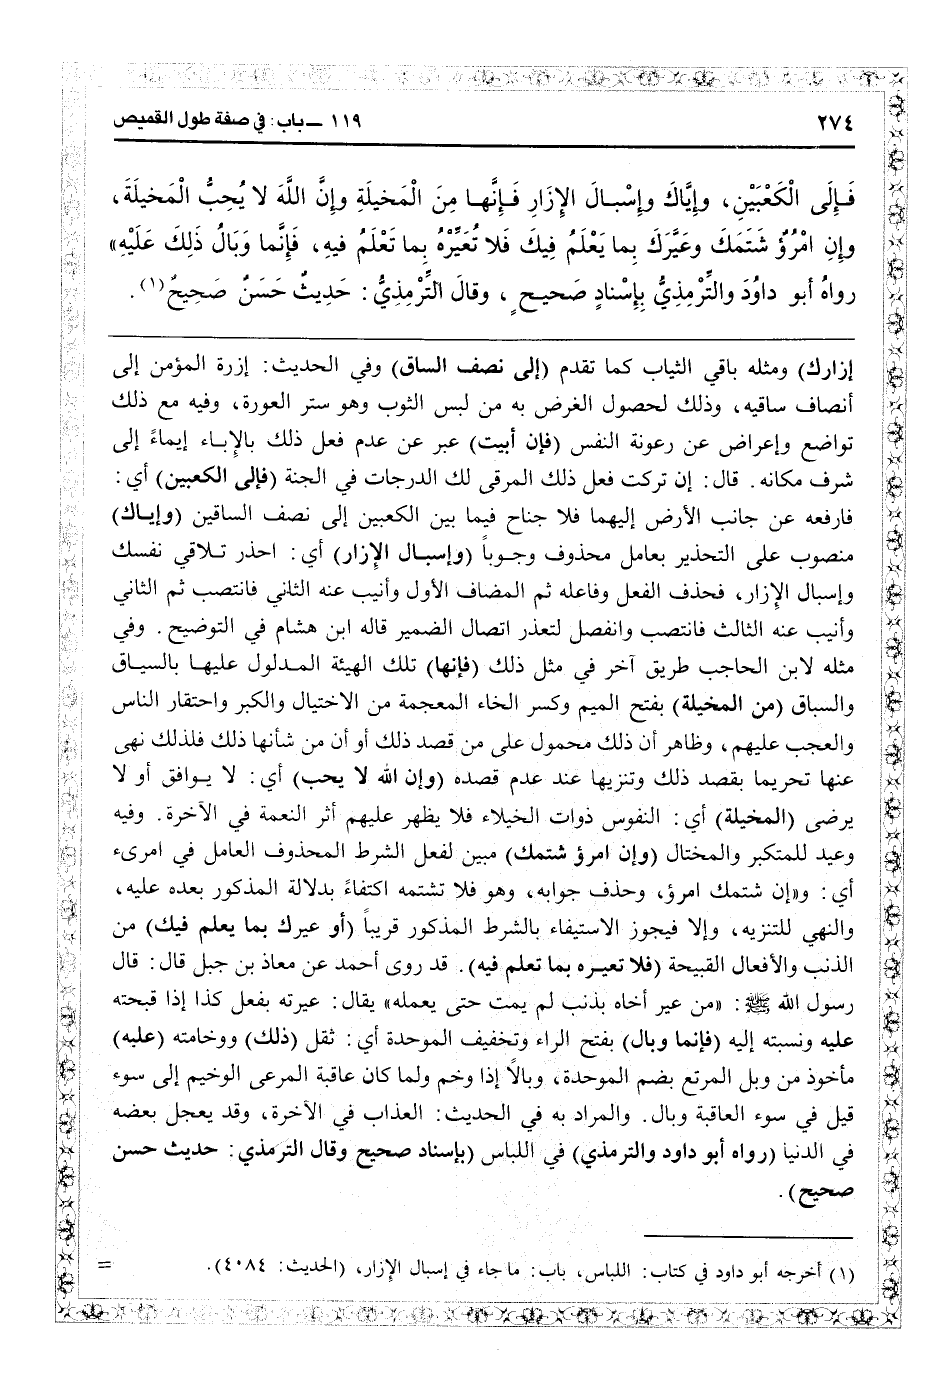 ٢٧٤
١١٩ ـ باب: في صفة طول القميص
فَـإِلَى الْكَعْبَيْنِ، وإِيَّاكَ وإِسْبـالَ الإِزَارِ فَـإِنَّهـا مِنَ الْمَخيلَةِ وإِنَّ اللَّهَ لا يُحِبُّ الْمَخيلَةَ،
وإِنِ امْرُؤٌ شَتَمَكَ وعَيَّرَكَ بِما يَعْلَمُ فيكَ فَلا تُعَيِّرْهُ بِما تَعْلَمُ فيهِ، فَإِنَّما وَبَالُ ذَلِكَ عَلَيْهِ»
رواهُ أبو داوُدَ والتِّرمِذيُّ بِإِسْنادٍ صَحيـحٍ، وقالَ التِّرْمِذيُّ: حَديثٌ حَسَنٌ صَحِيحٌ(١).
إزارك) ومثله باقي الثياب كما تقدم (إلى نصف الساق) وفي الحديث: إزرة المؤمن إلى
أنصاف ساقيه، وذلك لحصول الغرض به من لبس الثوب وهو ستر العورة، وفيه مع ذلك
تواضع وإعراض عن رعونة النفس (فإن أبيت) عبر عن عدم فعل ذلك بالإباء إيماءً إلى
شرف مكانه. قال: إن تركت فعل ذلك المرقى لك الدرجات في الجنة (فإلى الكعبين) أي:
فارفعه عن جانب الأرض إليهما فلا جناح فيما بين الكعبين إلى نصف الساقين (وإيـاك)
منصوب على التحذير بعامل محذوف وجـوباً (وإسبـال الإزار) أي: احذر تـلاقي نفسك
وإسبال الإزار، فحذف الفعل وفاعله ثم المضاف الأول وأنيب عنه الثاني فانتصب ثم الثاني
وأنيب عنه الثالث فانتصب وانفصل لتعذر اتصال الضمير قاله ابن هشام في التوضيح. وفي
مثله لابن الحاجب طريق آخر في مثل ذلك (فإنها) تلك الهيئة المـدلول عليهـا بالسيـاق
والسباق (من المخيلة) بفتح الميم وكسر الخاء المعجمة من الاختيال والكبر واحتقار الناس
والعجب عليهم، وظاهر أن ذلك محمول على من قصد ذلك أو أن من شأنها ذلك فلذلك نهى
عنها تحريما بقصد ذلك وتنزيها عند عدم قصده (وإن الله لا يحب) أي: لا يـوافق أو لا
يرضى (المخيلة) أي: النفوس ذوات الخيلاء فلا يظهر عليهم أثر النعمة في الآخرة. وفيه
وعيد للمتكبر والمختال (وإن امرؤ شتمك) مبين لفعل الشرط المحذوف العامل في امرىء
أي: و«إن شتمك امرؤ، وحذف جوابه، وهو فلا تشتمه اكتفاءً بدلالة المذكور بعده عليه،
والنهي للتنزيه، وإلا فيجوز الاستيفاء بالشرط المذكور قريباً (أو عيرك بما يعلم فيك) من
الذنب والأفعال القبيحة (فلا تعيـره بما تعلم فيه). قد روى أحمد عن معاذ بن جبل قال: قال
رسول الله ﷺ: «من عير أخاه بذنب لم يمت حتى يعمله» يقال: عيرته بفعل كذا إذا قبحته
عليه ونسبته إليه (فإنما وبال) بفتح الراء وتخفيف الموحدة أي: ثقل (ذلك) ووخامته (عليه)
مأخوذ من وبل المرتع بضم الموحدة، وبالًا إذا وخم ولما كان عاقبة المرعى الوخيم إلى سوء
قيل في سوء العاقبة وبال. والمراد به في الحديث: العذاب في الآخرة، وقد يعجل بعضه
في الدنيا (رواه أبو داود والترمذي) في اللباس (بإسناد صحيح وقال الترمذي: حديث حسن
صحيح).
(١) أخرجه أبو داود في كتاب: اللباس، باب: ما جاء في إسبال الإزار، (الحديث: ٤٠٨٤). =